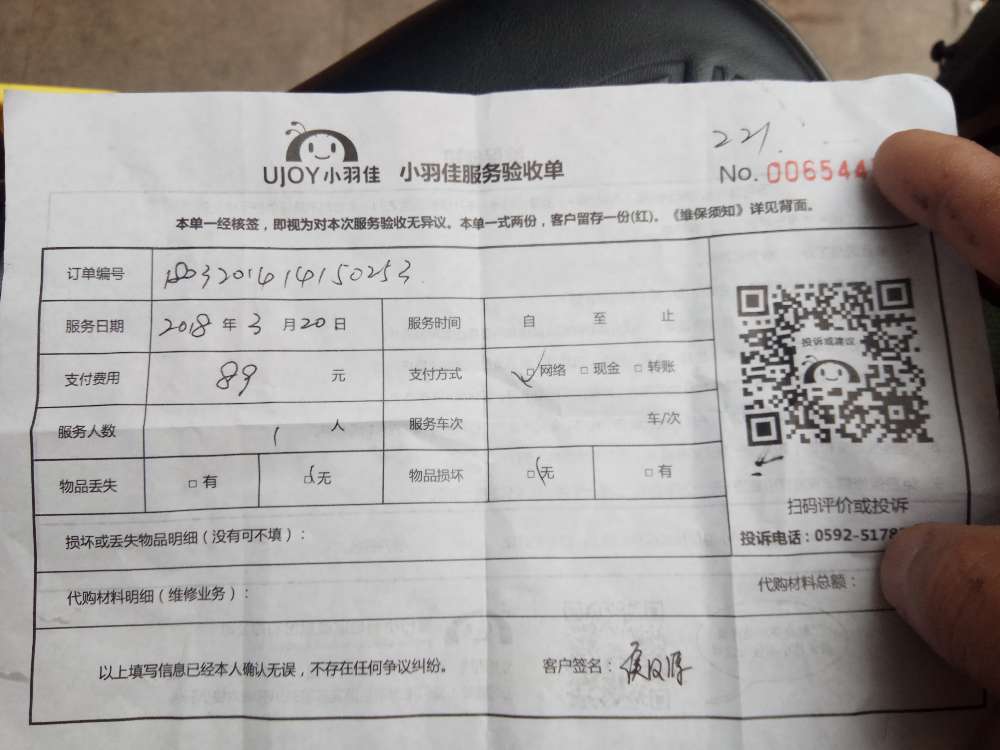 221
UJOY小羽佳 小羽佳服务验收单
No. 006544
本单一经核签，即视为对本次服务验收无异议。本单一式两份，客户留存一份(红)。《维保须知》详见背面。
订单编号 1803201414150253
服务日期 2018 年 3 月 20 日 服务时间 自 至 止
支付费用 89 元 支付方式 □网络 □现金 □转账
服务人数 1 人 服务车次 车/次
物品丢失 □有 □无 物品损坏 □无 □有
投诉或建议
扫码评价或投诉
投诉电话：0592-5178
损坏或丢失物品明细（没有可不填）：
代购材料明细（维修业务）： 代购材料总额：
以上填写信息已经本人确认无误，不存在任何争议纠纷。 客户签名：